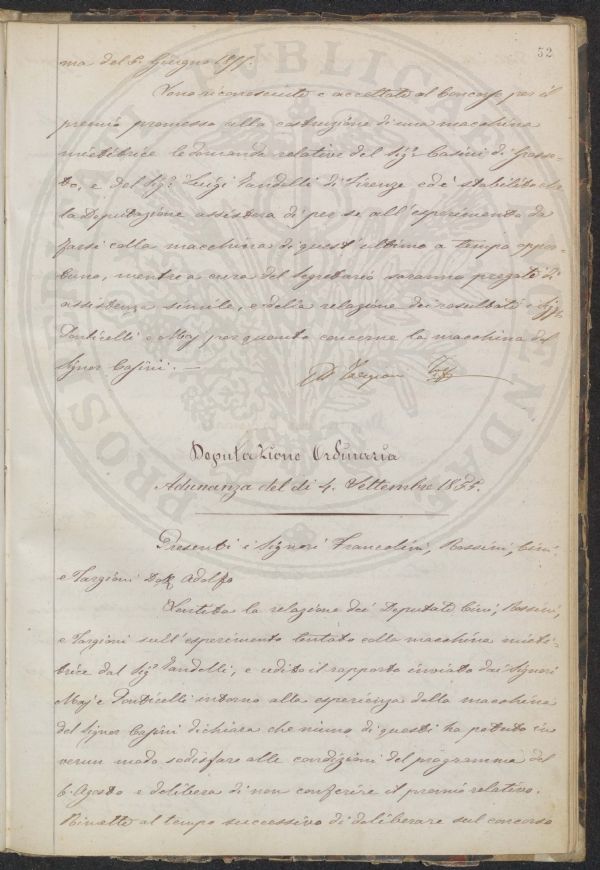 52
ma del 6. Giugno 1855.
Sono riconosciute e accettate al Concorso per il
premio promesso alla costruzione di una macchina
mietitrice le domande relative del Sig.r Casini di Grosse-
to, e del Sig.r Luigi Vandelli di Firenze ed è stabilito che
la Deputazione assisterà di per se all'esperimento da
farsi colla macchina di quest'ultimo a tempo oppor-
tuno, mentre a cura del Segretario saranno pregati di
assistenza simile, e della relazione dei resultati i Sigg.ri
Ponticelli e Maj per quanto concerne la macchina del
Signor Casini. —
Targioni
Deputazione Ordinaria
Adunanza del dì 4. Settembre 1855.
Presenti i Signori Francolini, Rossini, Cini
e Targioni Dott. Adolfo
Sentita la relazione dei Deputati Cini, Rossini,
e Targioni sull'esperimento tentato colla macchina mieti-
trice dal Sig.r Vandelli, e udito il rapporto inviato dai Signori
Maj e Ponticelli intorno alle esperienze della macchina
del Signor Casini dichiara che niuno di questi ha potuto in
verun modo sodisfare alle condizioni del programma del
6. Agosto e delibera di non conferire il premio relativo.
Rimette al tempo successivo di deliberare sul concorso
PROSPERITATI PUBLICAE AUGENDAE